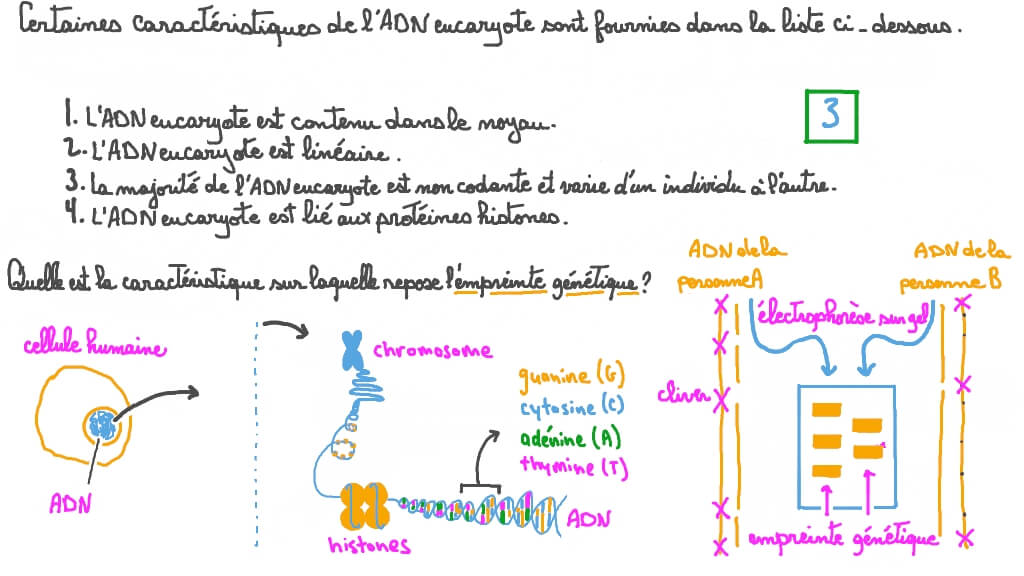 Certaines caractéristiques de l'ADN eucaryote sont fournies dans la liste ci-dessous.
1. L'ADN eucaryote est contenu dans le noyau.
2. L'ADN eucaryote est linéaire.
3. La majorité de l'ADN eucaryote est non codante et varie d'un individu à l'autre.
4. L'ADN eucaryote est lié aux protéines histones.
3
Quelle est la caractéristique sur laquelle repose l'empreinte génétique ?
cellule humaine
ADN
chromosome
guanine (G)
cytosine (C)
adénine (A)
thymine (T)
ADN
histones
ADN de la
personne A
ADN de la
personne B
électrophorèse sur gel
cliver
empreinte génétique